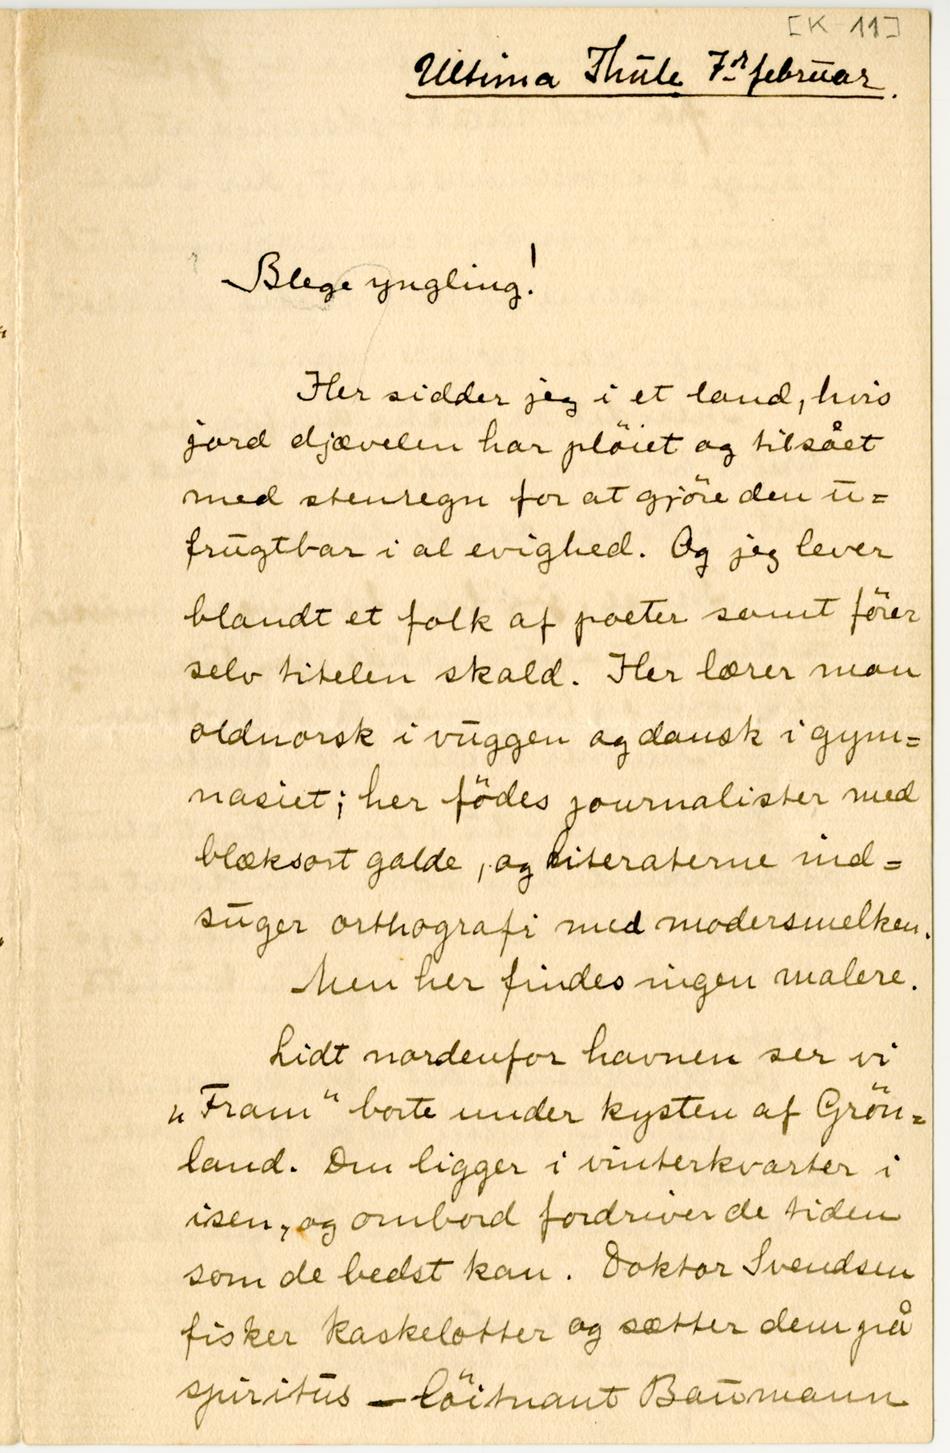 [K 11]
Ultima Thule 7de februar.
Blege yngling!
Her sidder jeg i et land, hvis
jord djævelen har plöiet og tilsået
med stenregn for at gjöre den u=
frugtbar i al evighed. Og jeg lever
blandt et folk af poeter samt förer
selv titelen skald. Her lærer man
oldnorsk i vuggen og dansk i gym=
nasiet; her födes journalister med
blæksort galde, og literaterne ind=
suger orthografi med modersmelken.
Men her findes ingen malere.
Lidt nordenfor havnen ser vi
„Fram“ borte under kysten af Grön=
land. Den ligger i vinterkvarter i
isen, og ombord fordriver de tiden
som de bedst kan. Doktor Svendsen
fisker kaskelotter og sætter dem på
spiritus — löitnant Baumann